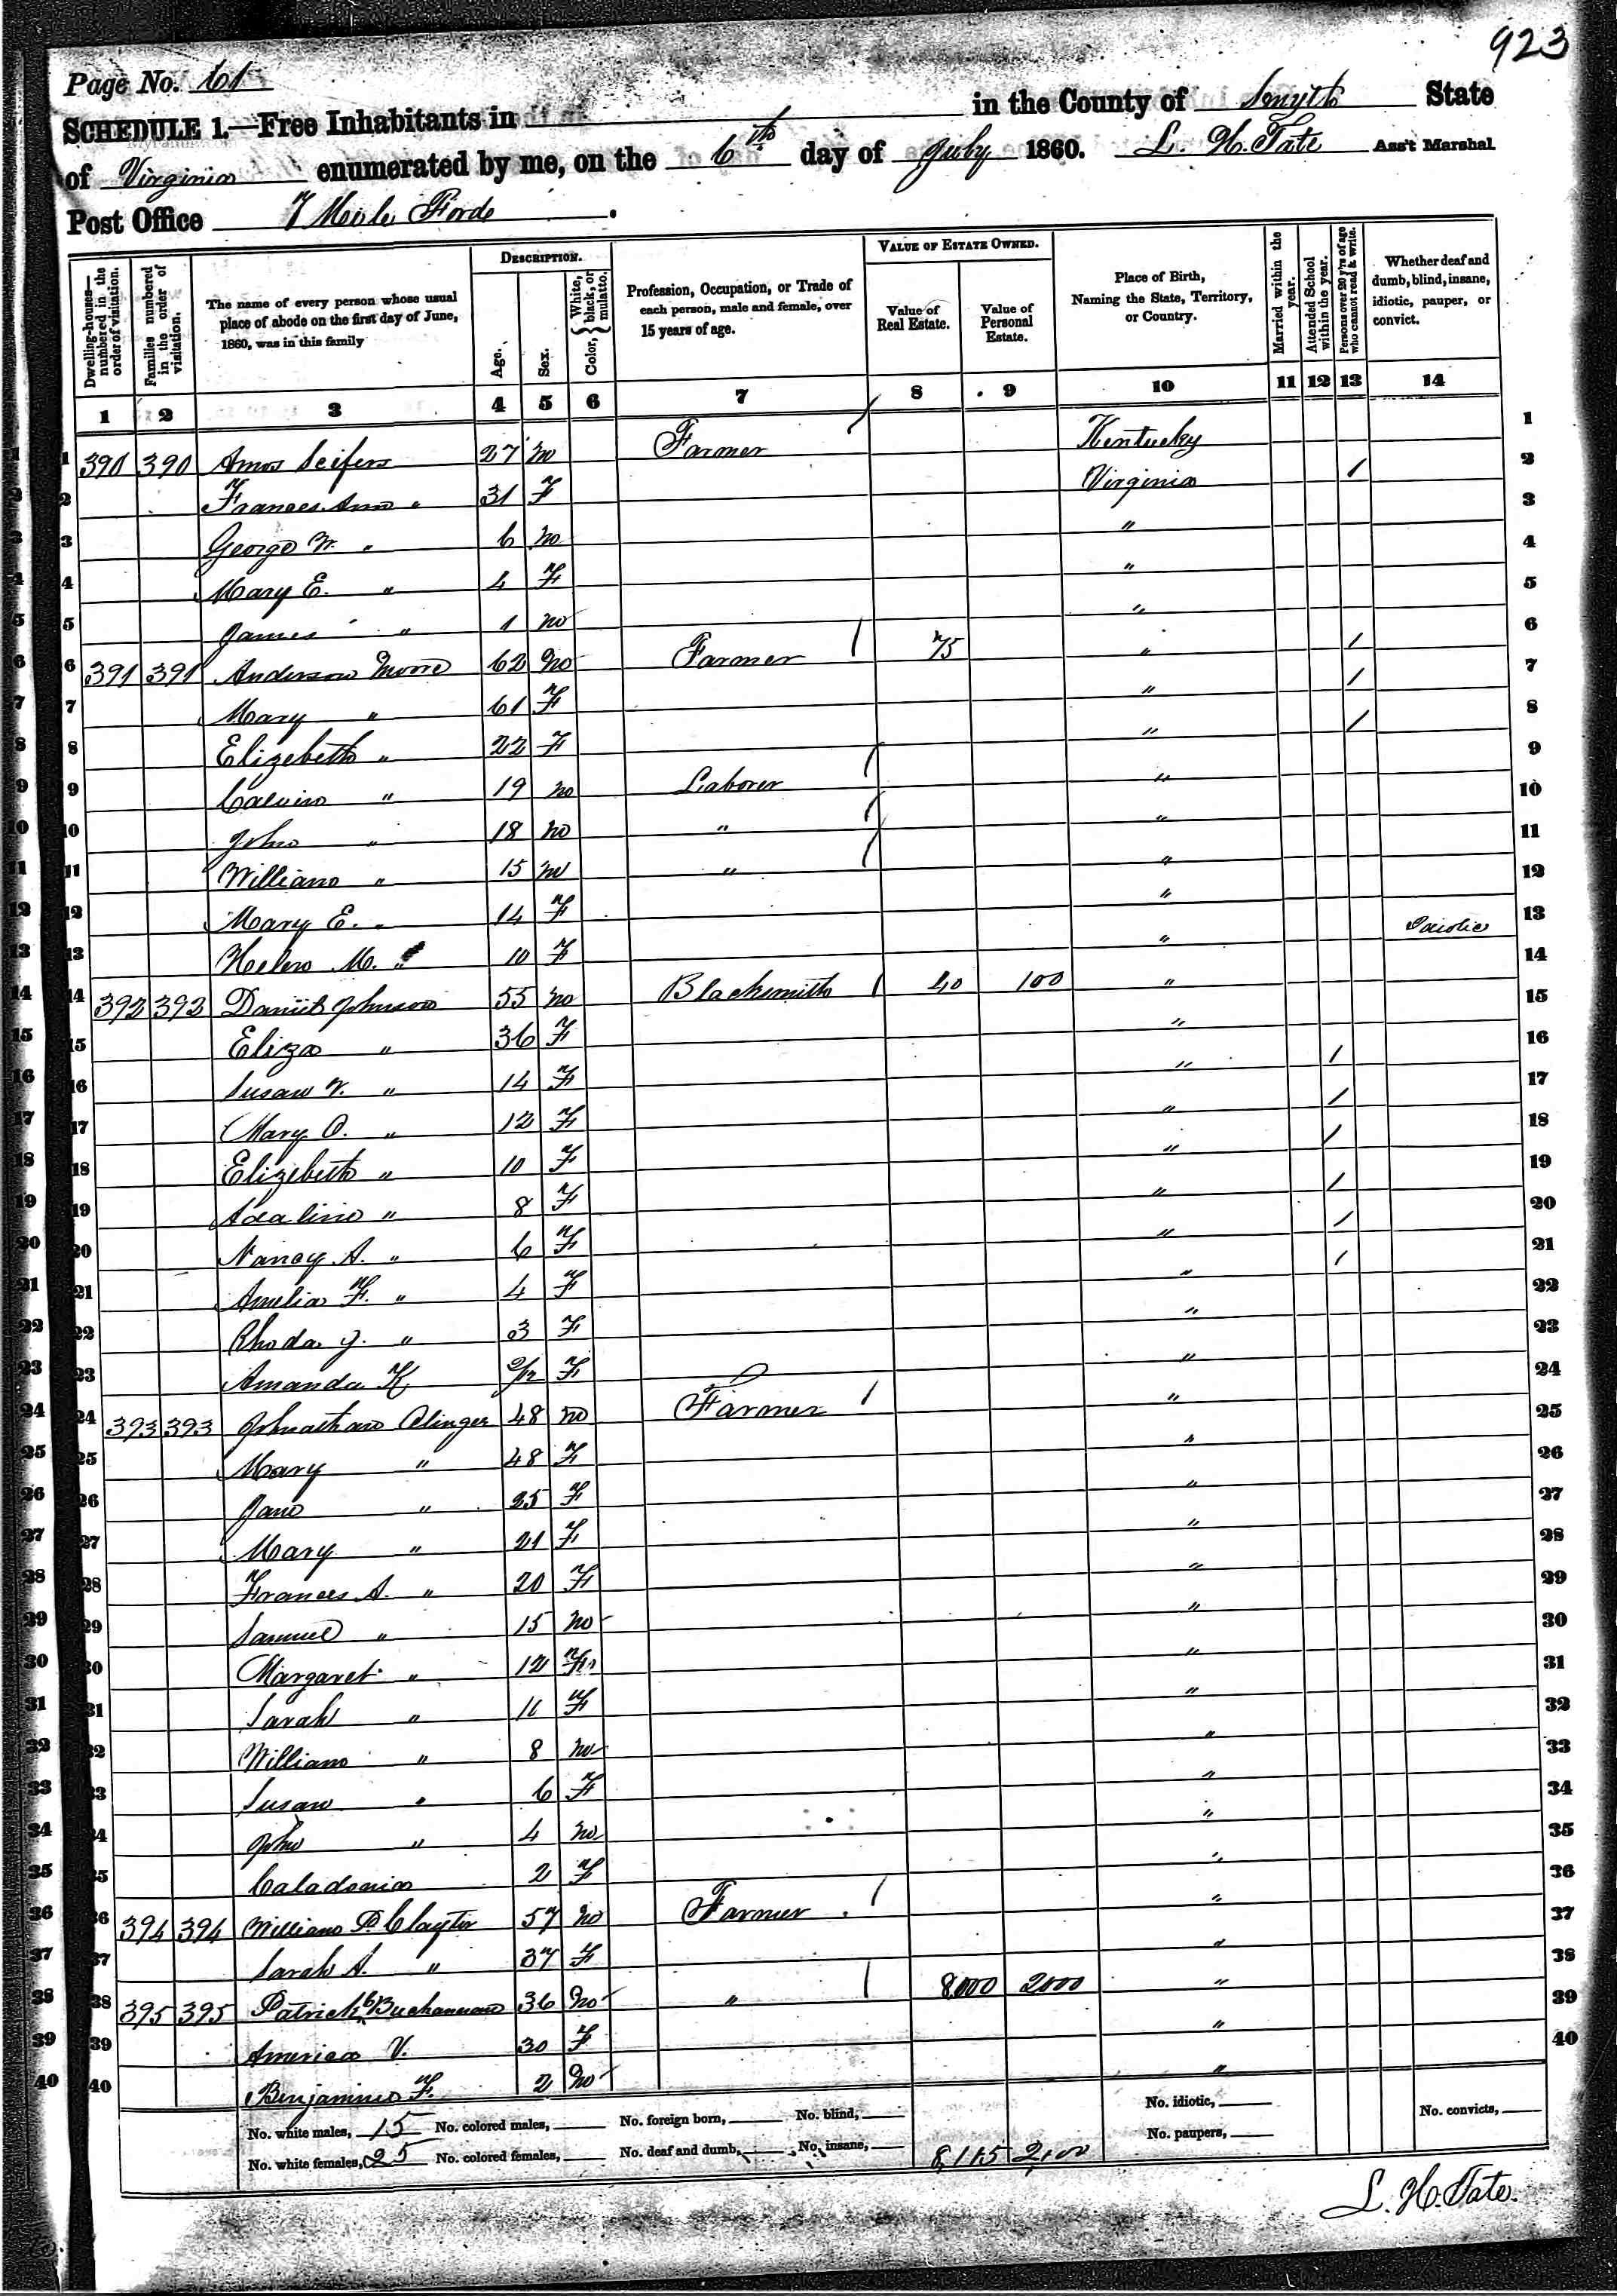 923
Page No. 61
SCHEDULE 1.—Free Inhabitants in in the County of Smyth State
of Virginia enumerated by me, on the 6th day of July 1860. L. H. Tate Ass't Marshal
Post Office 7 Mile Ford.
Dwelling-houses—numbered in the order of visitation. Families numbered in the order of visitation. The name of every person whose usual place of abode on the first day of June, 1860, was in this family DESCRIPTION. Age. Sex. Color, White, black, or mulatto. Profession, Occupation, or Trade of each person, male and female, over 15 years of age. VALUE OF ESTATE OWNED. Value of Real Estate. Value of Personal Estate. Place of Birth, Naming the State, Territory, or Country. Married within the year. Attended School within the year. Persons over 20 y'rs of age who cannot read & write. Whether deaf and dumb, blind, insane, idiotic, pauper, or convict.
1 2 3 4 5 6 7 8 9 10 11 12 13 14
1 390 390 Amos 27 m Farmer Kentucky 1
2 Frances Ann " 31 F Virginia / 2
3 George W. " 6 m " 3
4 Mary E. " 4 F " 4
5 James " 1 m " 5
6 391 391 Anderson Moore 62 m Farmer 75 " / 6
7 Mary " 61 F " / 7
8 Elizebeth " 22 F " / 8
9 Calvin " 19 m Laborer " 9
10 John " 18 m " " 10
11 William " 15 m " " 11
12 Mary E. " 14 F " 12
13 Helen M. " 10 F " Idiotic 13
14 392 392 Daniel Johnson 55 m Blacksmith 40 100 " 14
15 Eliza " 36 F " 15
16 Susan V. " 14 F " / 16
17 Mary O. " 12 F " / 17
18 Elizebeth " 10 F " / 18
19 Adaline " 8 F " / 19
20 Nancy A. " 6 F " / 20
21 Amelia F. " 4 F " / 21
22 Rhoda J. " 3 F " 22
23 Amanda K 9/12 F " 23
24 393 393 Johnathan Olinger 48 m Farmer " 24
25 Mary " 48 F " 25
26 Jane " 25 F " 26
27 Mary " 21 F " 27
28 Frances A. " 20 F " 28
29 Samuel " 15 m " 29
30 Margaret " 12 F " 30
31 Sarah " 11 F " 31
32 William " 8 m " 32
33 Susan " 6 F " 33
34 John " 4 m " 34
35 Caladonia 2 F " 35
36 394 394 William P. Claytor 57 m Farmer " 36
37 Sarah A. " 37 F " 37
38 395 395 Patrick C Buchannan 36 m " 8,000 2000 " 38
39 America V. 30 F " 39
40 Benjamin F. 2 m " 40
No. white males, 15 No. colored males, No. foreign born, No. blind, No. idiotic, No. convicts,
No. white females, 25 No. colored females, No. deaf and dumb, No. insane, 8,115 2,100 No. paupers,
L. H. Tate.